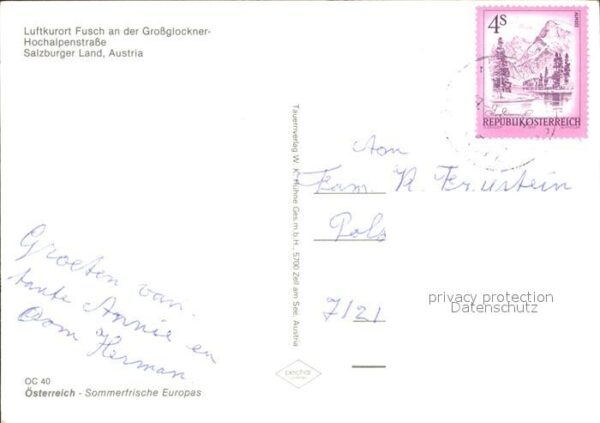 Luftkurort Fusch an der Großglockner-
Hochalpenstraße
Salzburger Land, Austria
4S
ALMSEE
REPUBLIK ÖSTERREICH
Tauernverlag W. K. Huhne Ges.m.b.H., 5700 Zell am See, Austria
Aan
Fam. K.
Pols
7121
Groeten van
tante Annie en
Oom Herman
privacy protection
Datenschutz
OC 40
Österreich - Sommerfrische Europas